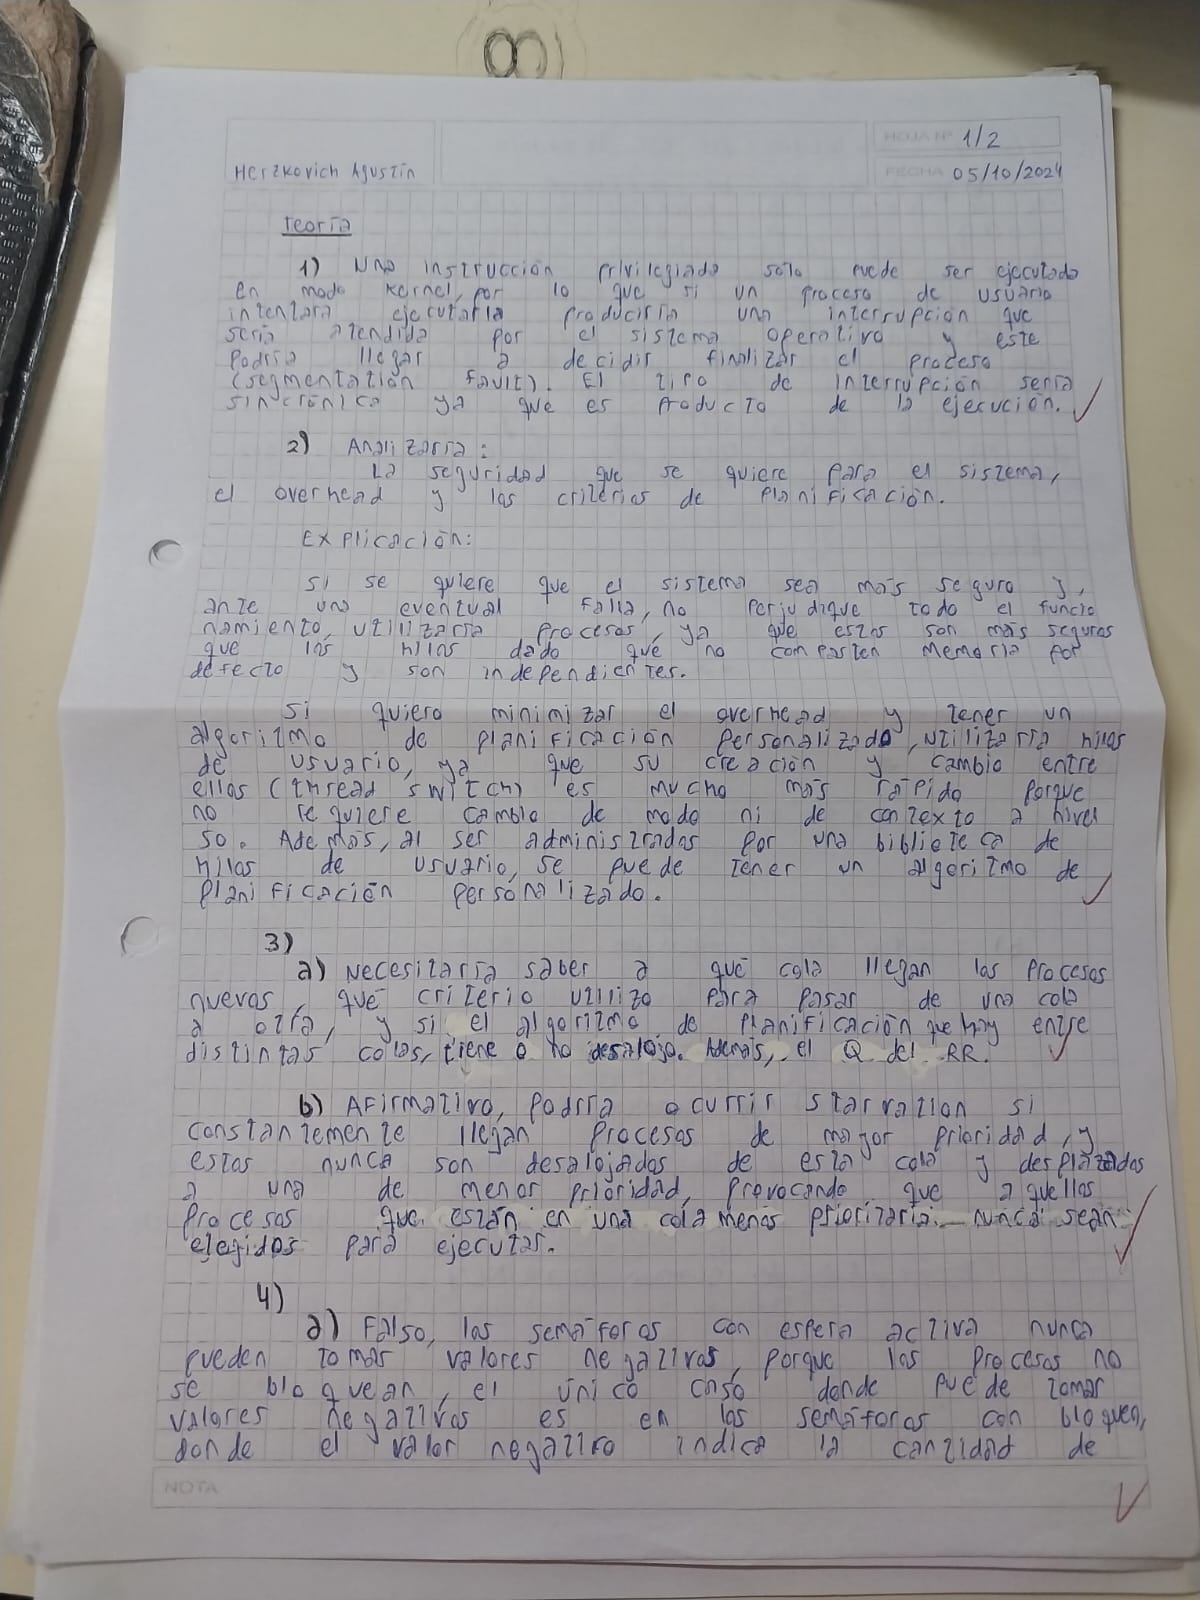 8
HOJA Nº 1/2
Herzkovich Agustín
FECHA 05/10/2024
Teoría
1) Una instrucción privilegiada sólo puede ser ejecutada
en modo kernel, por lo que si un proceso de usuario
intentara ejecutarla produciría una interrupción que
sería atendida por el sistema operativo y este
podría llegar a decidir finalizar el proceso
(segmentation fault). El tipo de interrupción sería
sincrónica ya que es producto de la ejecución.
2) Analizaría:
La seguridad que se quiere para el sistema,
el overhead y los criterios de planificación.
Explicación:
Si se quiere que el sistema sea más seguro y,
ante una eventual falla, no perjudique todo el funcio
namiento, utilizaría procesos, ya que estos son más seguros
que los hilos dado que no comparten memoria por
defecto y son independientes.
Si quiero minimizar el overhead y tener un
algoritmo de planificación personalizado, utilizaría hilos
de usuario, ya que su creación y cambio entre
ellos (thread switch) es mucho más rápido porque
no requiere cambio de modo ni de contexto a nivel
so. Además, al ser administrados por una biblioteca de
hilos de usuario, se puede tener un algoritmo de
planificación personalizado.
3)
a) Necesitaría saber a qué cola llegan los procesos
nuevos, qué criterio utilizo para pasar de una cola
a otra, y si el algoritmo de planificación que hay entre
distintas colas, tiene o no desalojo. Además, el Q del RR.
b) Afirmativo, podría ocurrir starvation si
constantemente llegan procesos de mayor prioridad, y
estos nunca son desalojados de esta cola y desplazados
a una de menor prioridad, provocando que aquellos
procesos que están en una cola menos prioritaria nunca sean
elegidos para ejecutar.
4)
a) Falso, los semáforos con espera activa nunca
pueden tomar valores negativos, porque los procesos no
se bloquean, el único caso donde puede tomar
valores negativos es en los semáforos con bloqueo,
donde el valor negativo indica la cantidad de
NOTA